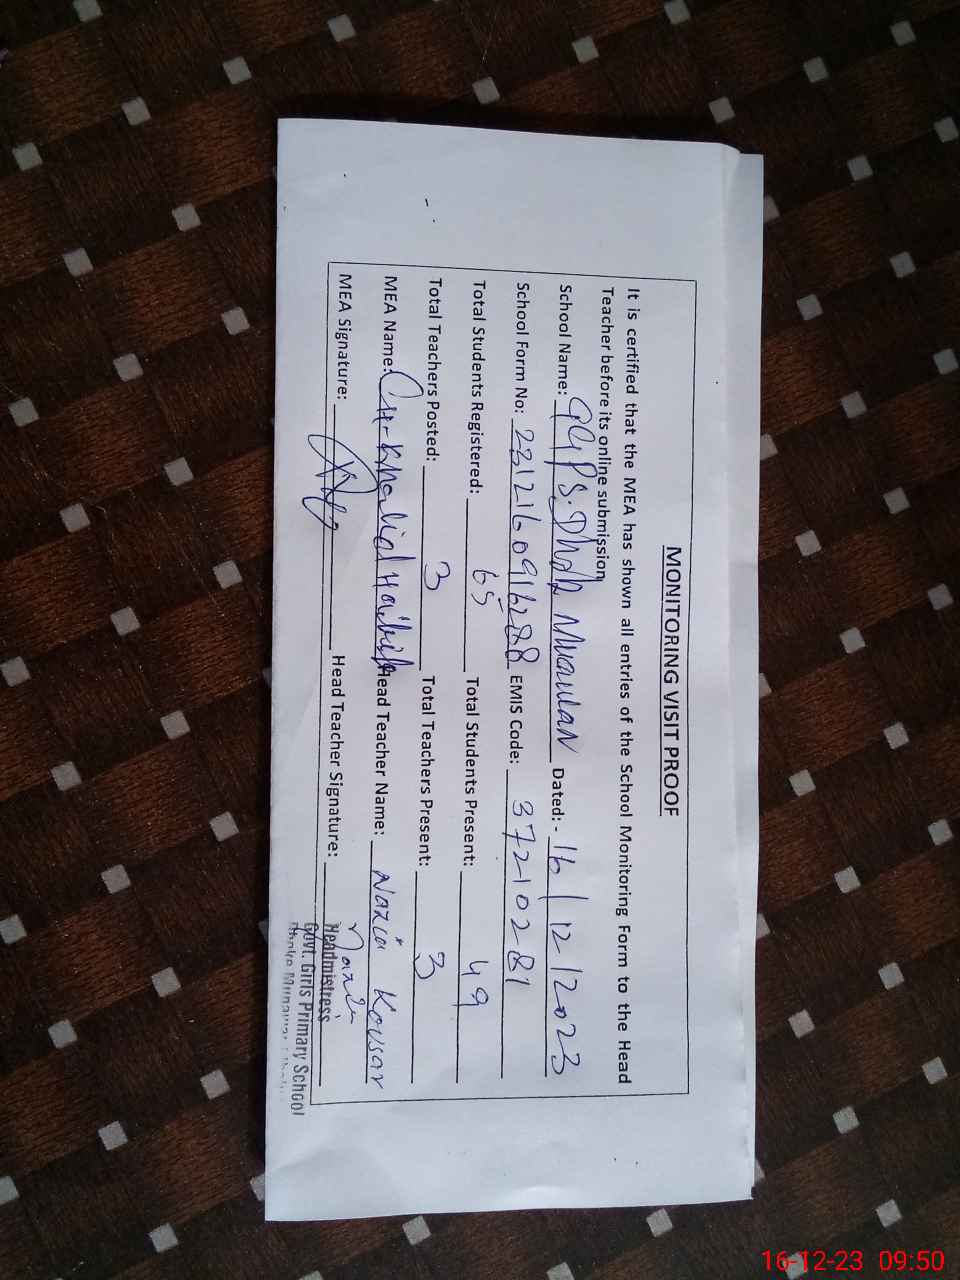 MONITORING VISIT PROOF
It is certified that the MEA has shown all entries of the School Monitoring Form to the Head
Teacher before its online submission
School Name: GGPS. Dhok Dated: - 16/12/2023
School Form No: 231216091628 EMIS Code: 37210281
Total Students Registered: 65 Total Students Present: 49
Total Teachers Posted: 3 Total Teachers Present: 3
MEA Name: CH-Khalid Habib Head Teacher Name: Nazia Kousar
MEA Signature: Head Teacher Signature: Nazia
Headmistress
Govt. Girls Primary School
16-12-23 09:50